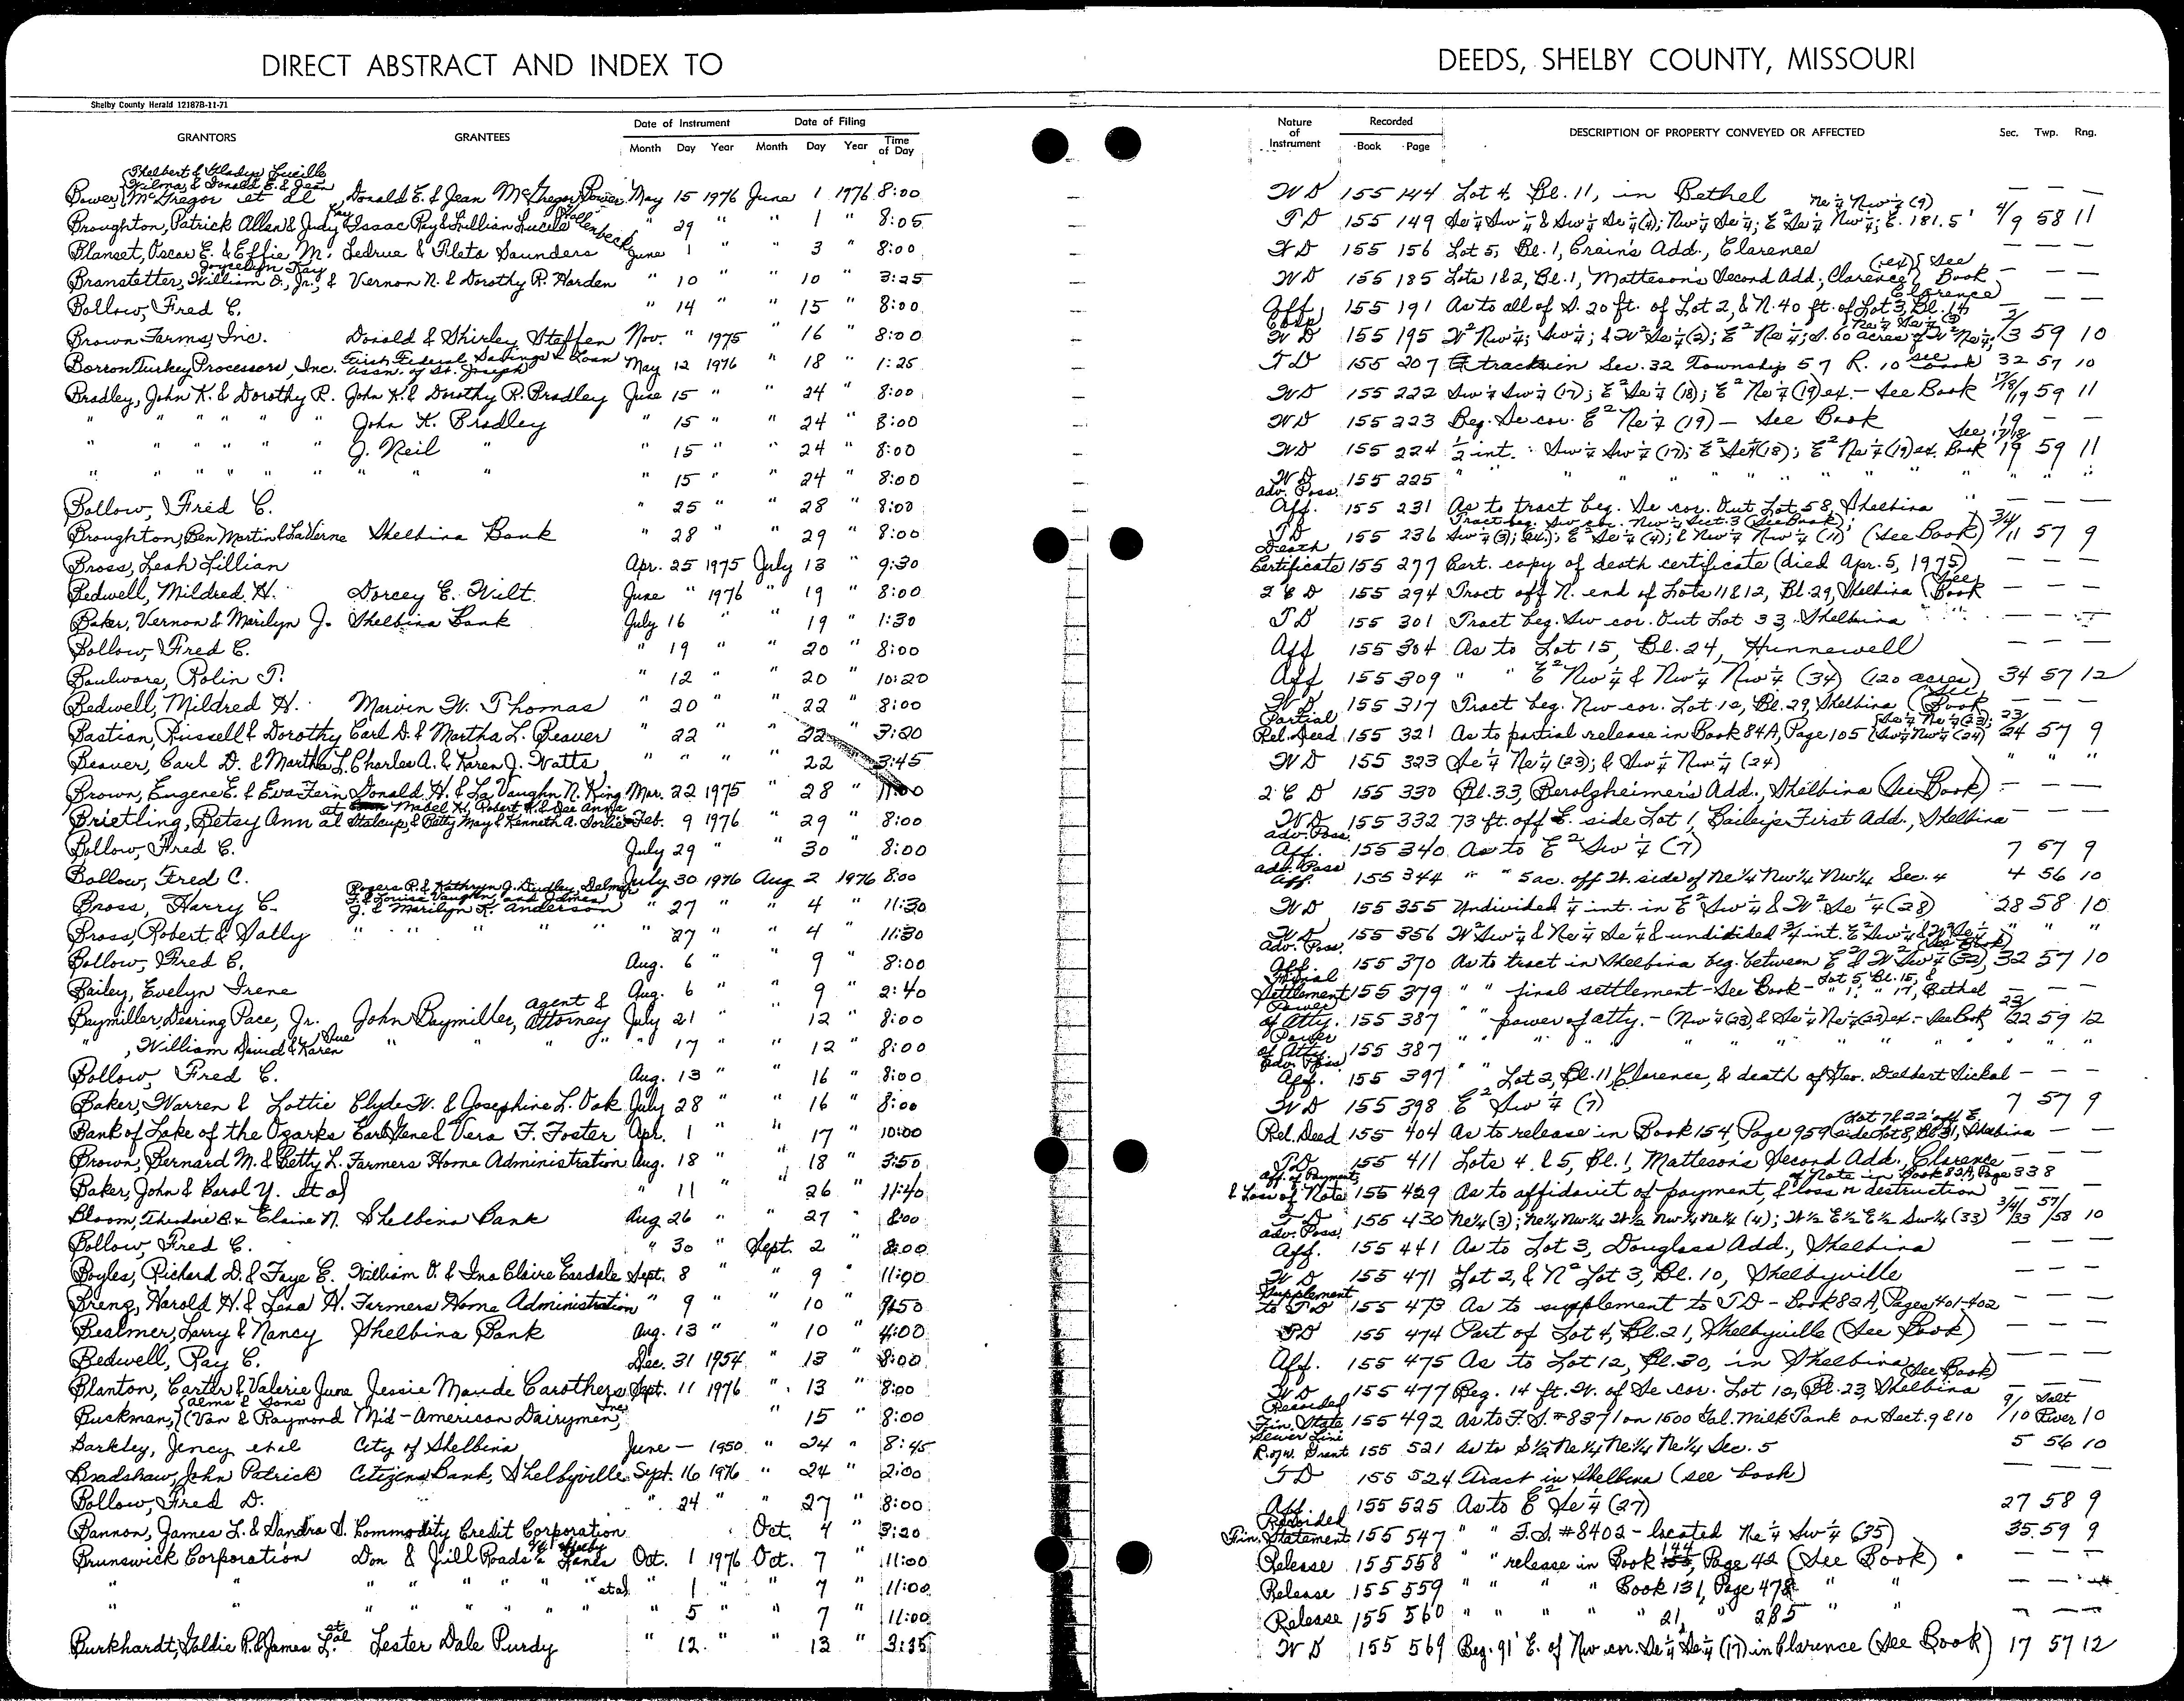 DIRECT ABSTRACT AND INDEX TO DEEDS, SHELBY COUNTY, MISSOURI
Shelby County Herald 12187B-11-71
GRANTORS GRANTEES Date of Instrument Month Day Year Date of Filing Month Day Year Time of Day Nature of Instrument Recorded Book Page DESCRIPTION OF PROPERTY CONVEYED OR AFFECTED Sec. Twp. Rng.
Bower, {Thelbert & Gladys Lucille Wilma, & Donald E. & Jean McGregor et al Donald E. & Jean McGregor Bower May 15 1976 June 1 1976 8:00 WD 155 144 Lot 4, Bl. 11, in Bethel — — —
Broughton, Patrick Allen & Judy Kay Isaac Ray & Lillian Lucile Hollenbeck " 29 " " 1 " 8:05 TD 155 149 Se¼ Sw¼ & Sw¼ Se¼ (4); Nw¼ Se¼; E² Se¼ Nw¼; E. 181.5' Ne¼ Nw¼ (9) 4/9 58 11
Blanset, Oscar E. & Effie M. Ledrue & Fleta Saunders June 1 " " 3 " 8:00 WD 155 156 Lot 5, Bl. 1, Crain's Add., Clarence — — —
Branstetter, William O., Jr., & Joycelyn Kay Vernon N. & Dorothy R. Harden " 10 " 10 " 3:25 WD 155 185 Lots 1&2, Bl. 1, Matteson's Second Add., Clarence (ex) {See Book — — —
Bollow, Fred C. " 14 " " 15 " 8:00 Aff. 155 191 As to all of S. 20 ft. of Lot 2, & N. 40 ft. of Lot 3, Bl. 14 Clarence — — —
Brown Farms, Inc. Donald & Shirley Steffen Nov. " 1975 " 16 " 8:00 Corp. WD 155 195 W² Nw¼; Sw¼; & W² Se¼ (2); E² Ne¼; S. 60 acres of W² Ne¼; Ne¼ Se¼ (3) 2/3 59 10
Borron Turkey Processors, Inc. First Federal Savings & Loan Assn. of St. Joseph May 12 1976 " 18 " 1:25 TD 155 207 tracts in Sec. 32 Township 57 R. 10 see book 32 57 10
Bradley, John K. & Dorothy R. John K. & Dorothy R. Bradley June 15 " " 24 " 8:00 WD 155 222 Sw¼ Sw¼ (17); E² Se¼ (18); E² Ne¼ (19) ex. - See Book 17/18/19 59 11
" " " " " John K. Bradley " 15 " " 24 " 8:00 WD 155 223 Beg. Se cor. E² Ne¼ (19) — See Book 19 — —
" " " " " J. Neil " " 15 " " 24 " 8:00 WD 155 224 ½ int. : Sw¼ Sw¼ (17); E² Se¼ (18); E² Ne¼ (19) ex. See Book 17/18/19 59 11
" " " " " " " " 15 " " 24 " 8:00 WD 155 225 " " " " " " " " " "
Bollow, Fred C. " 25 " " 28 " 8:00 Adv. Poss. Aff. 155 231 As to tract beg. Se cor. Out Lot 58, Shelbina " — —
Broughton, Ben Martin & LaVerne Shelbina Bank " 28 " " 29 " 8:00 TD 155 236 Tract beg. Sw cor. Nw¼ Sect. 3 (See Book); Sw¼ (3); (ex.); E² Se¼ (4); & Nw¼ Nw¼ (11) (See Book) 3/4/11 57 9
Bross, Leah Lillian Apr. 25 1975 July 13 " 9:30 Death Certificate 155 277 Cert. copy of death certificate (died Apr. 5, 1975) — — —
Bedwell, Mildred H. Dorcey E. Wilt June " 1976 " 19 " 8:00 2 C D 155 294 Tract off N. end of Lots 11&12, Bl. 29, Shelbina (See Book — — —
Baker, Vernon & Marilyn J. Shelbina Bank July 16 " " 19 " 1:30 TD 155 301 Tract beg. Sw cor. Out Lot 33, Shelbina
Bollow, Fred C. " 19 " " 20 " 8:00 Aff 155 304 As to Lot 15, Bl. 24, Hunnewell — — —
Boulware, Rolin T. " 12 " " 20 " 10:20 Aff 155 309 " " E² Nw¼ & Nw¼ Nw¼ (34) (120 acres) 34 57 12
Bedwell, Mildred H. Marvin W. Thomas " 20 " " 22 " 8:00 WD 155 317 Tract beg. Nw cor. Lot 12, Bl. 29, Shelbina (See Book — — —
Bastian, Russell & Dorothy Carl D. & Martha L. Beaver " 22 " " 22 " 3:20 Partial Rel. Deed 155 321 As to partial release in Book 84A, Page 105 {Se¼ Ne¼ (23); Sw¼ Nw¼ (24) 23/24 57 9
Beaver, Carl D. & Martha L. Charles A. & Karen J. Watts " " " " 22 " 3:45 WD 155 323 Se¼ Ne¼ (23); & Sw¼ Nw¼ (24) " " "
Brown, Eugene E. & Eva Fern Donald H. & La Vaughn N. King Mar. 22 1975 " 28 " 11:00 2 C D 155 330 Bl. 33, Berolzheimer's Add., Shelbina (See Book) — — —
Brietling, Betsy Ann et al Mabel H., Robert H. & Dee Anna Stalcup, & Betty May & Kenneth A. Sorlie Feb. 9 1976 " 29 " 8:00 WD 155 332 73 ft. off E. side Lot 1, Bailey's First Add., Shelbina — — —
Bollow, Fred C. July 29 " " 30 " 8:00 Adv. Poss. Aff. 155 340 As to E² Sw¼ (7) 7 57 9
Bollow, Fred C. July 30 1976 Aug 2 1976 8:00 Adv. Poss Aff. 155 344 " " 5 ac. off W. side of Ne¼ Nw¼ Nw¼ Sec. 4 4 56 10
Bross, Harry C. Rogers R. & Kathryn J. Dudley, Delmar F. & Louise Vaughn, and James J. & Marilyn K. Anderson " 27 " " 4 " 11:30 WD 155 355 Undivided ¼ int. in E² Sw¼ & W² Se¼ (28) 28 58 10
Bross, Robert & Sally " " " " " " 27 " " 4 " 11:30 WD 155 356 W² Sw¼ & Ne¼ Se¼ & undivided ¾ int. E² Sw¼ & W² Se¼ " " "
Bollow, Fred C. Aug. 6 " " 9 " 8:00 Adv. Poss. Aff. 155 370 As to tract in Shelbina beg. between E² & W² Sw¼ (32), (See Book) 32 57 10
Bailey, Evelyn Irene Aug. 6 " " 9 " 2:40 Final Settlement 155 379 " " final settlement - See Book - Lot 5, Bl. 15, & " 1, " 17, Bethel — — —
Baymiller, Dearing Pace, Jr. John Baymiller, Agent & Attorney July 21 " " 12 " 8:00 Power of Atty. 155 387 " " power of atty. - (Nw¼ (23) & Se¼ Ne¼ (22) ex. - See Book 23/22 59 12
" , William David & Karen Sue " " " " " 17 " " 12 " 8:00 Power of Atty. 155 387 " " " " " " " " " " "
Bollow, Fred C. Aug. 13 " " 16 " 8:00 Adv. Poss. Aff. 155 397 " " Lot 2, Bl. 11 Clarence, & death of Geo. Delbert Sickal — — —
Baker, Warren & Lottie Clyde W. & Josephine L. Oak July 28 " " 16 " 8:00 WD 155 398 E² Sw¼ (7) 7 57 9
Bank of Lake of the Ozarks Earl Gene & Vera F. Foster Apr. 1 " " 17 " 10:00 Rel. Deed 155 404 As to release in Book 154, Page 959 (Lot 7 & 22' off E. side Lot 8, Bl 31, Shelbina — —
Brown, Bernard M. & Betty L. Farmers Home Administration Aug. 18 " " 18 " 3:50 TD 155 411 Lots 4 & 5, Bl. 1, Matteson's Second Add., Clarence — — —
Baker, John & Carol Y. et al " 11 " " 26 " 11:40 Aff. of Payment, & Loss of Note 155 429 As to affidavit of payment, & loss or destruction of Note in Book 82A, Page 338 — — —
Bloom, Theodore B. & Elaine N. Shelbina Bank Aug 26 " " 27 " 8:00 TD 155 430 Ne¼ (3); Ne¼ Nw¼ W½ Nw¼ Ne¼ (4); W½ E½ E½ Sw¼ (33) 3/4/33 57/58 10
Bollow, Fred C. " 30 " Sept. 2 " 8:00 Adv. Poss. Aff. 155 441 As to Lot 3, Douglass Add., Shelbina — — —
Boyles, Richard D. & Faye E. William O. & Ina Claire Easdale Sept. 8 " " 9 " 11:00 WD 155 471 Lot 2, & N² Lot 3, Bl. 10, Shelbyville — — —
Breng, Harold H. & Lena H. Farmers Home Administration " 9 " " 10 " 9:50 Supplement to TD 155 473 As to supplement to TD - Book 82A, Pages 401-402 — — —
Beslmer, Larry & Nancy Shelbina Bank Aug. 13 " " 10 " 4:00 TD 155 474 Part of Lot 4, Bl. 21, Shelbyville (See Book) — — —
Bedwell, Ray C. Dec. 31 1954 " 13 " 8:00 Aff. 155 475 As to Lot 12, Bl. 30, in Shelbina — — —
Blanton, Carter & Valerie June Jessie Maude Carothers Sept. 11 1976 " 13 " 8:00 WD 155 477 Beg. 14 ft. W. of Se cor. Lot 12, Bl. 23, Shelbina (See Book) — — —
Buskman, {Alms & Sons (Van & Raymond Mid-American Dairymen, Inc. " 15 " 8:00 Recorded Fin. State 155 492 As to F.S. #8371 on 1500 Gal. Milk Tank on Sect. 9 & 10 9/10 Salt River 10
Barkley, Jency et al City of Shelbina June — 1950 " 24 " 8:45 Sewer Line R.of w. Grant 155 521 As to S½ Ne¼ Ne¼ Ne¼ Sec. 5 5 56 10
Bradshaw, John Patrick Citizens Bank, Shelbyville Sept. 16 1976 " 24 " 2:00 TD 155 524 Tract in Shelbina (see book) — — —
Bollow, Fred D. " 24 " " 27 " 8:00 Aff. 155 525 As to E² Se¼ (27) 27 58 9
Bannon, James L. & Sandra S. Commodity Credit Corporation Oct. 4 " 3:20 Recorded Fin. Statement 155 547 " " F.S. #8402 - located Ne¼ Sw¼ (35) 35 59 9
Brunswick Corporation Don & Jill Roads Shelby Lanes Oct. 1 1976 Oct. 7 " 11:00 Release 155 558 " " release in Book 144, Page 42 (See Book) — — —
" " " " " " " " et al " 1 " " 7 " 11:00 Release 155 559 " " " " Book 131, Page 478 " " — — —
" " " " " " " " " 5 " " 7 " 11:00 Release 155 560 " " " " " 21, " 285 " " — — —
Burkhardt, Goldie P. & James L. et al Lester Dale Purdy " 12 " " 13 " 3:35 WD 155 569 Beg. 91' E. of Nw cor. Se¼ Se¼ (17) in Clarence (See Book) 17 57 12